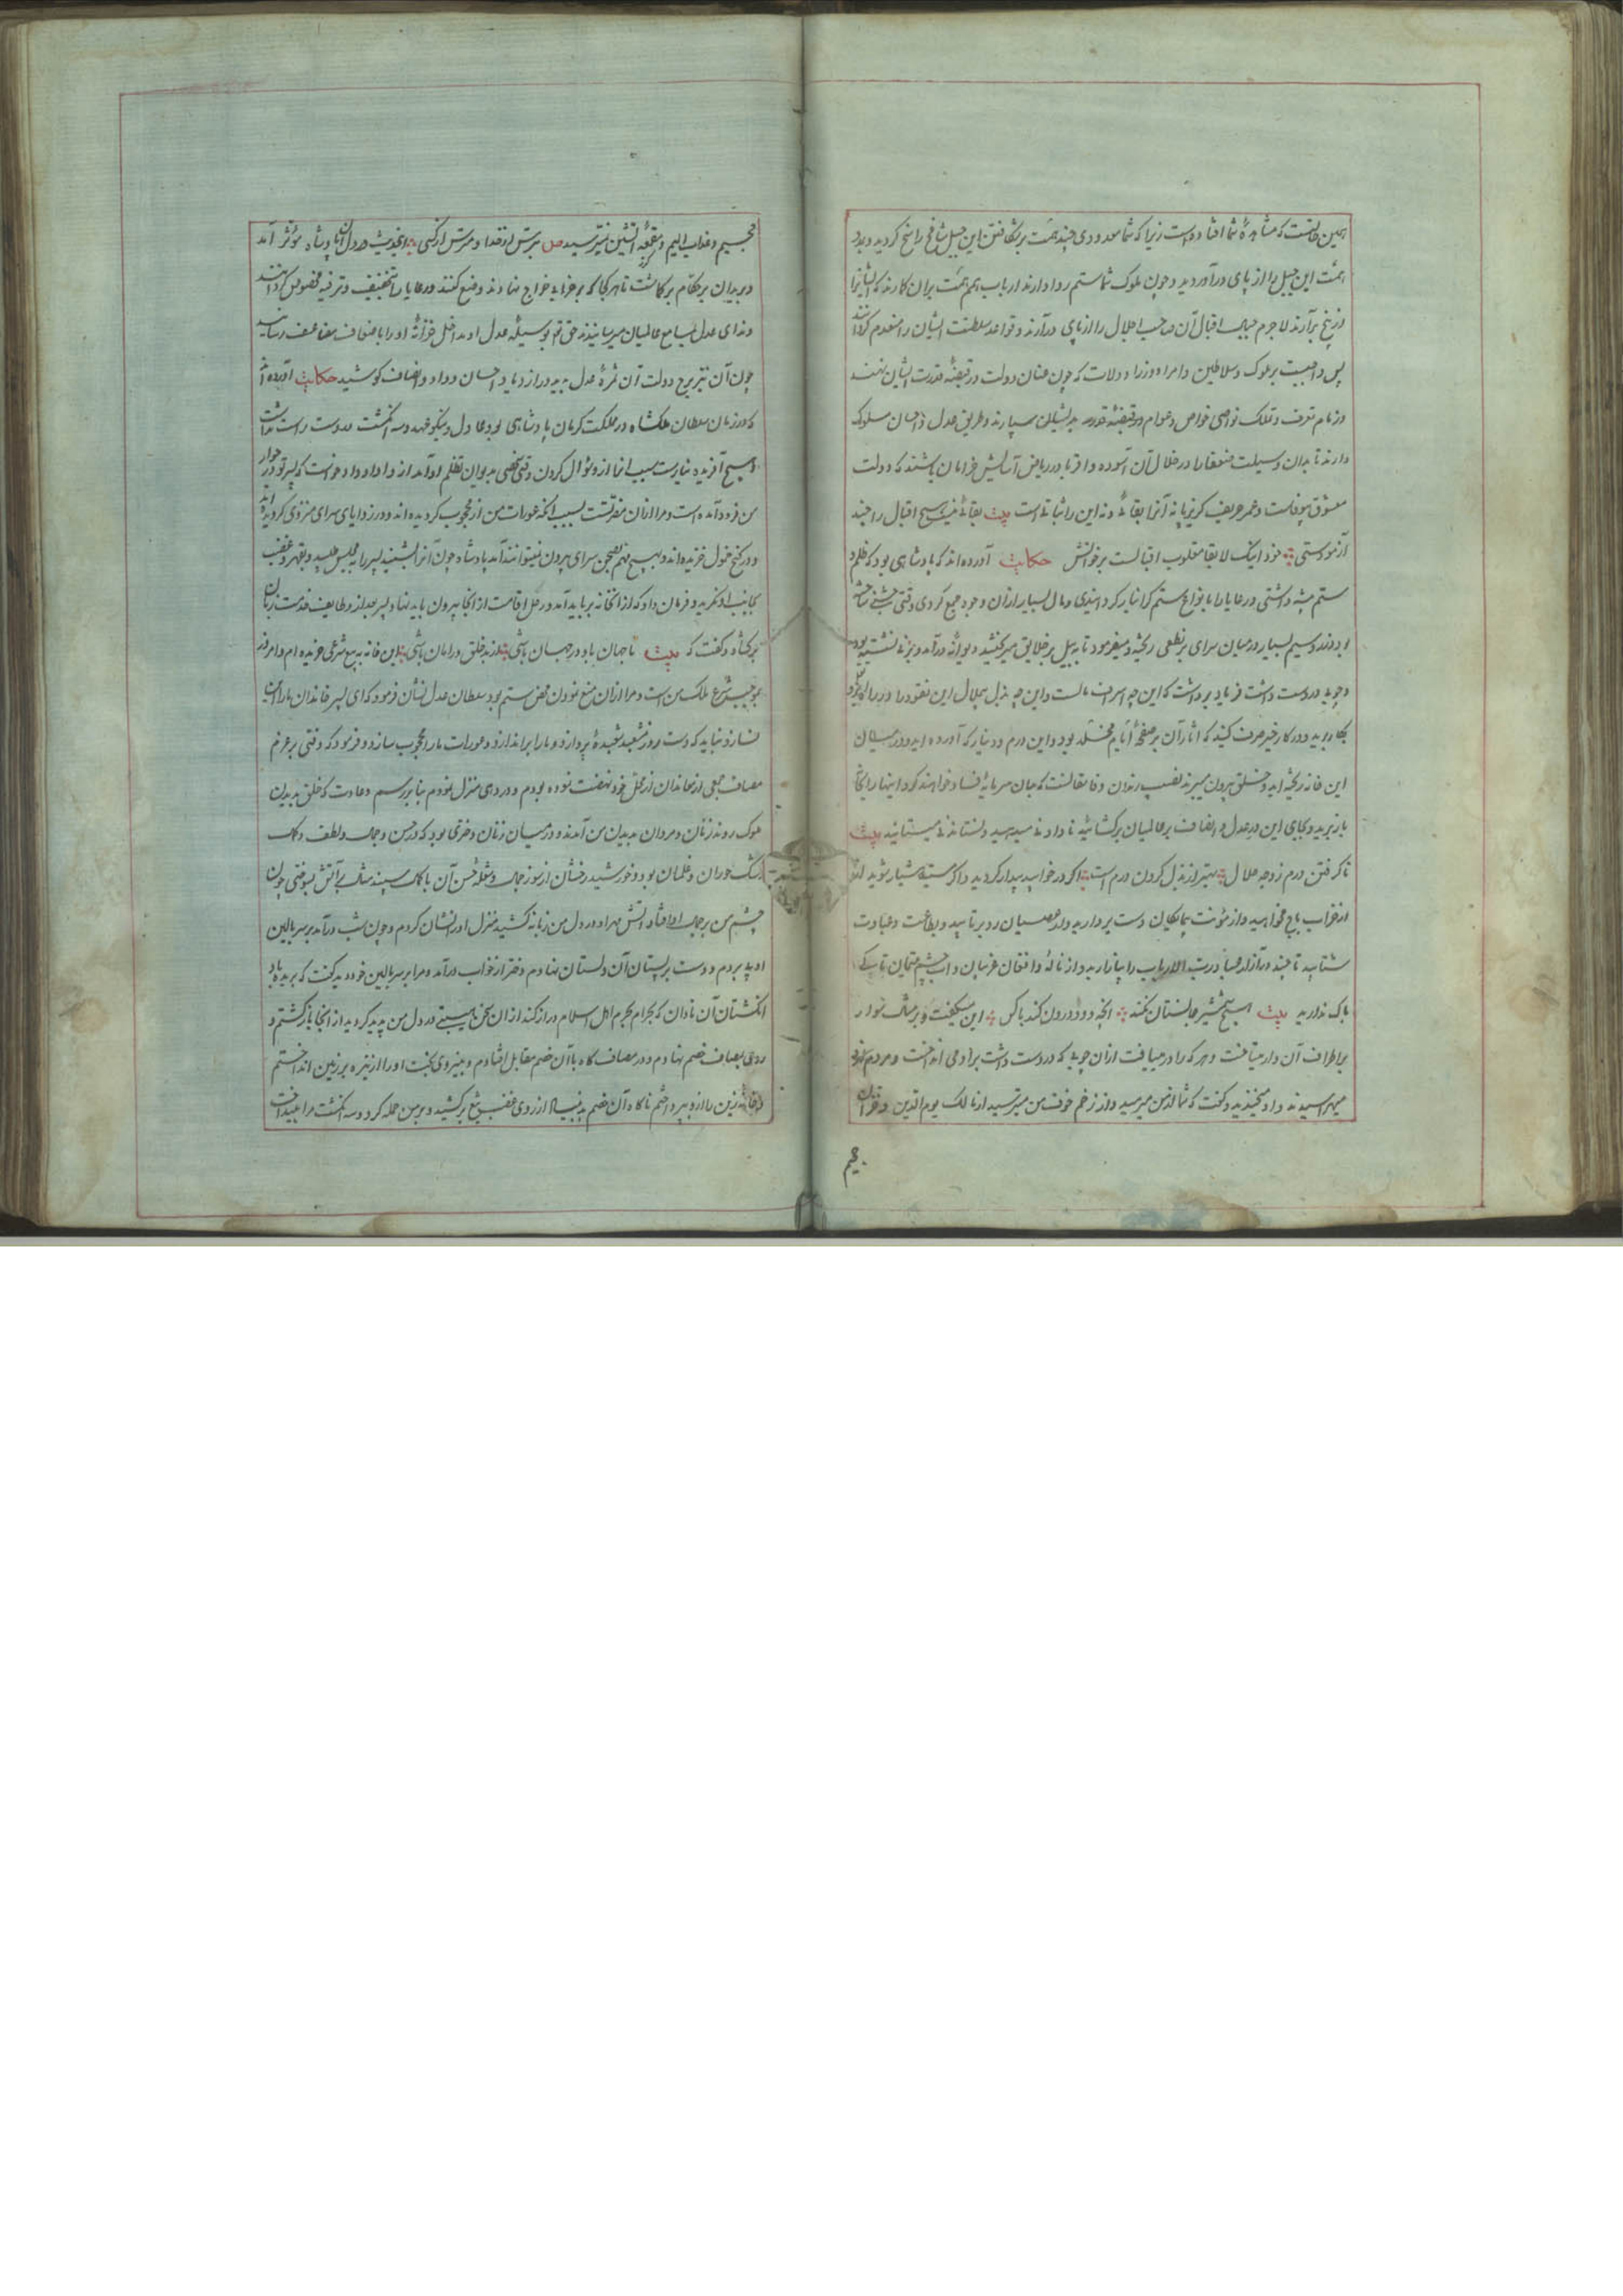 همین حالتست که مشاهدهٔ شما افتاده است زیرا که شما معدودی چند همت بر شکافتن این جبل شامخ راسخ کردید و بدد
همت این جبل را از پای درآوردید و چون ملوک شما ستم روا دارند ارباب همم همت بران کارند که ایشانرا
از بیخ برآرند لاجرم جبال اقبال آن صاحب اجلال را از پای درآرند و قواعد سلطنت ایشان را منعدم گردانند
پس واجبست بر ملوک و سلاطین و امرا و وزرا و ولات که چون عنان دولت در قبضهٔ قدرت ایشان نهند
و زمام تصرف و تملک نواصی خواص و عوام در قبضهٔ بدیشان سپارند طریق عدل و احسان سلوک
دارند تا بدان وسیلت ضعفا را در ظلال آن آسوده و اقربا در ریاض آسایش خرامان باشند که دولت
معشوق بیوفاست و عمر حریف گریزپا نه آنرا بقائی و نه این را ثباتی است بیت بقائی نیست هیچ اقبال را چند
آزمودستی خود اینک لابقا مقلوب اقبالست برخوانش حکایت آورده‌اند که پادشاهی بود که ظلم و
ستم پیشه داشتی و رعایا را بانواع ستم گرانبار کردانیدی و مال بسیار ازان وجوه جمع کردی وقتی جشنی ساخته
بودند و سیم بسیار در میان سرای بر نطعی ریخته و میفرمود تا به بیل بر خلایق میبخشید دیوانهٔ درآمد و بر نی نشسته بود
و چوبی در دست داشت فریاد برداشت که این چه اسرافست و این چه بذل بیمآل این نقود را در
بکار برید و در کار خیر صرف کنید که آثار آن بر صفحهٔ ایام مخلد بود و این درم و دینار که آورده‌اید و در میان
این خانه ریخته‌اید و خلق بیرون میبرند نصیب رندان و سرمایهٔ فساد خواهند کرد اینها را بجا
باز برید و بجای این در عدل و انصاف بر عالمیان برگشائید تا دادنی میدهید و نستاندنی میستانید بیت
ناگرفتن درم ز وجه حلال بهتر از بذل کردن درم است اگر در خوابید بیدار گردید و اگر مستید هشیار شوید
از خراب باج مخواهید و از مؤنت دست بردارید و از عصیان رو برتابید و بطاعت و عبادت
شتابید تا چند در آزار عباد رب الارباب را بیازارید و از ناله و افغان غریبان و آب چشم یتیمان تا بکی
باک ندارید بیت هیچ شمشیر جانستان نکند آنچه دود درون کند با کس این میگفت و بر مثال سوار
بر اطراف آن دار میتاخت و هر که را درمییافت ازان چوبی که در دست داشت بر او می انداخت و مردم از وی
میهراسیدند و او میخندید و گفت که شما از من میترسید و از زخم خوف من میترسید از مالک یوم الدین و
جحیم
جحیم و عذاب الیم و مقمعهٔ آتشین نمیترسید ص برترس از خدا و مترس از کسی این حدیث در دل آن پادشاه مؤثر آمد
و بریدان بر حکام برگماشت تا هر کجا که بر خرابی خراج نهادند وضع کنند و رعایا را بتخفیف و ترفیه مخصوص کردانند
و ندای عدل بمسامع عالمیان میرسانیدند حق تعالی بوسیلهٔ عدل او مداخل خزانهٔ او را باضعاف مضاعف رسانید
چون آن نتیجه دولت آن ثمرهٔ عدل بدید در ازدیاد احسان و داد و انصاف کوشید حکایت آورده‌اند
که در زمان سلطان ملکشاه در مملکت کرمان پادشاهی بود عادل و نیکو عهد و سه انگشت دست راست نداشت
و هیچ آفریده نیارست سبب آنرا ازو سؤال کردن وقتی شخصی بدیوان تظلم او آمد از و او داد خواست که پسر تو در جوار
من فرود آمده است و مرا ازان مضرتست بسبب آنکه عورات من ازو محجوب کردیده‌اند و در زوایای سرای منزوی گردیده‌اند
و در کنج خمول خزیده‌اند و بهیچ مهم بصحن سرای بیرون نمیتوانند آمد پادشاه چون آنرا بشنید پسر را بمجلس طلبید و بقهر و غضب
بجانب او نگرید و فرمان داد که ازان خانه برباید آمد و رحل اقامت از آنجا بیرون باید نهاد پسر بعد از وظایف خدمت زبان
برگشاد و گفت که بیت تا جهان باد در جهان باشی از بد خلق در امان باشی این خانه به بیع شرعی خریده‌ام و امروز
بموجب شرع ملک من است و مرا ازان منع نمودن محض ستم بود سلطان عدل نشان فرمود که ای پسر خاندان ما را این
نسازد نباید که دست روز مشعبد شعبدهٔ پردازد و ما را براندازد و عورات ما را محجوب سازد و فرمود که وقتی بر عزم
مصاف جمعی از معاندان از محل خود نهضت نموده بودم و در دهی منزل نمودم بنابر رسم و عادت که خلق بدیدن
ملوک روند زنان و مردان بدیدن من آمدند و در میان زنان دختری بود که در حسن و جمال و لطف و کمال
رشک حوران و غلمان بود و خورشید رخشان از سوز جمال و شعلهٔ حسن آن با کمال سپند مثال بر آتش بسوختی چون
چشم من بر جمال او افتاد آتش مهر او در دل من زبانه کشید منزل او را نشان کردم و چون شب درآمد بر سر بالین
او پی بردم و دست بر پستان آن دلستان نهادم دختر از خواب درآمد و مرا بر سر بالین خود دید گفت که بریده باد
انگشتان آن نادان که بحرام بحرم اهل اسلام دراز کند ازان سخن هیبتی در دل من پدید گردید از آنجا بازگشتم و
روی بمصاف خصم نهادم و در مصاف گاه با آن خصم مقابل افتادم و بنیروی بخت او را از نیزه بر زمین انداختم
و خانهٔ زین را ازو بپرداختم ناگاه آن خصم از روی غضب تیغ برکشید و بر من حمله کرد و سه انگشت مرا بینداخت